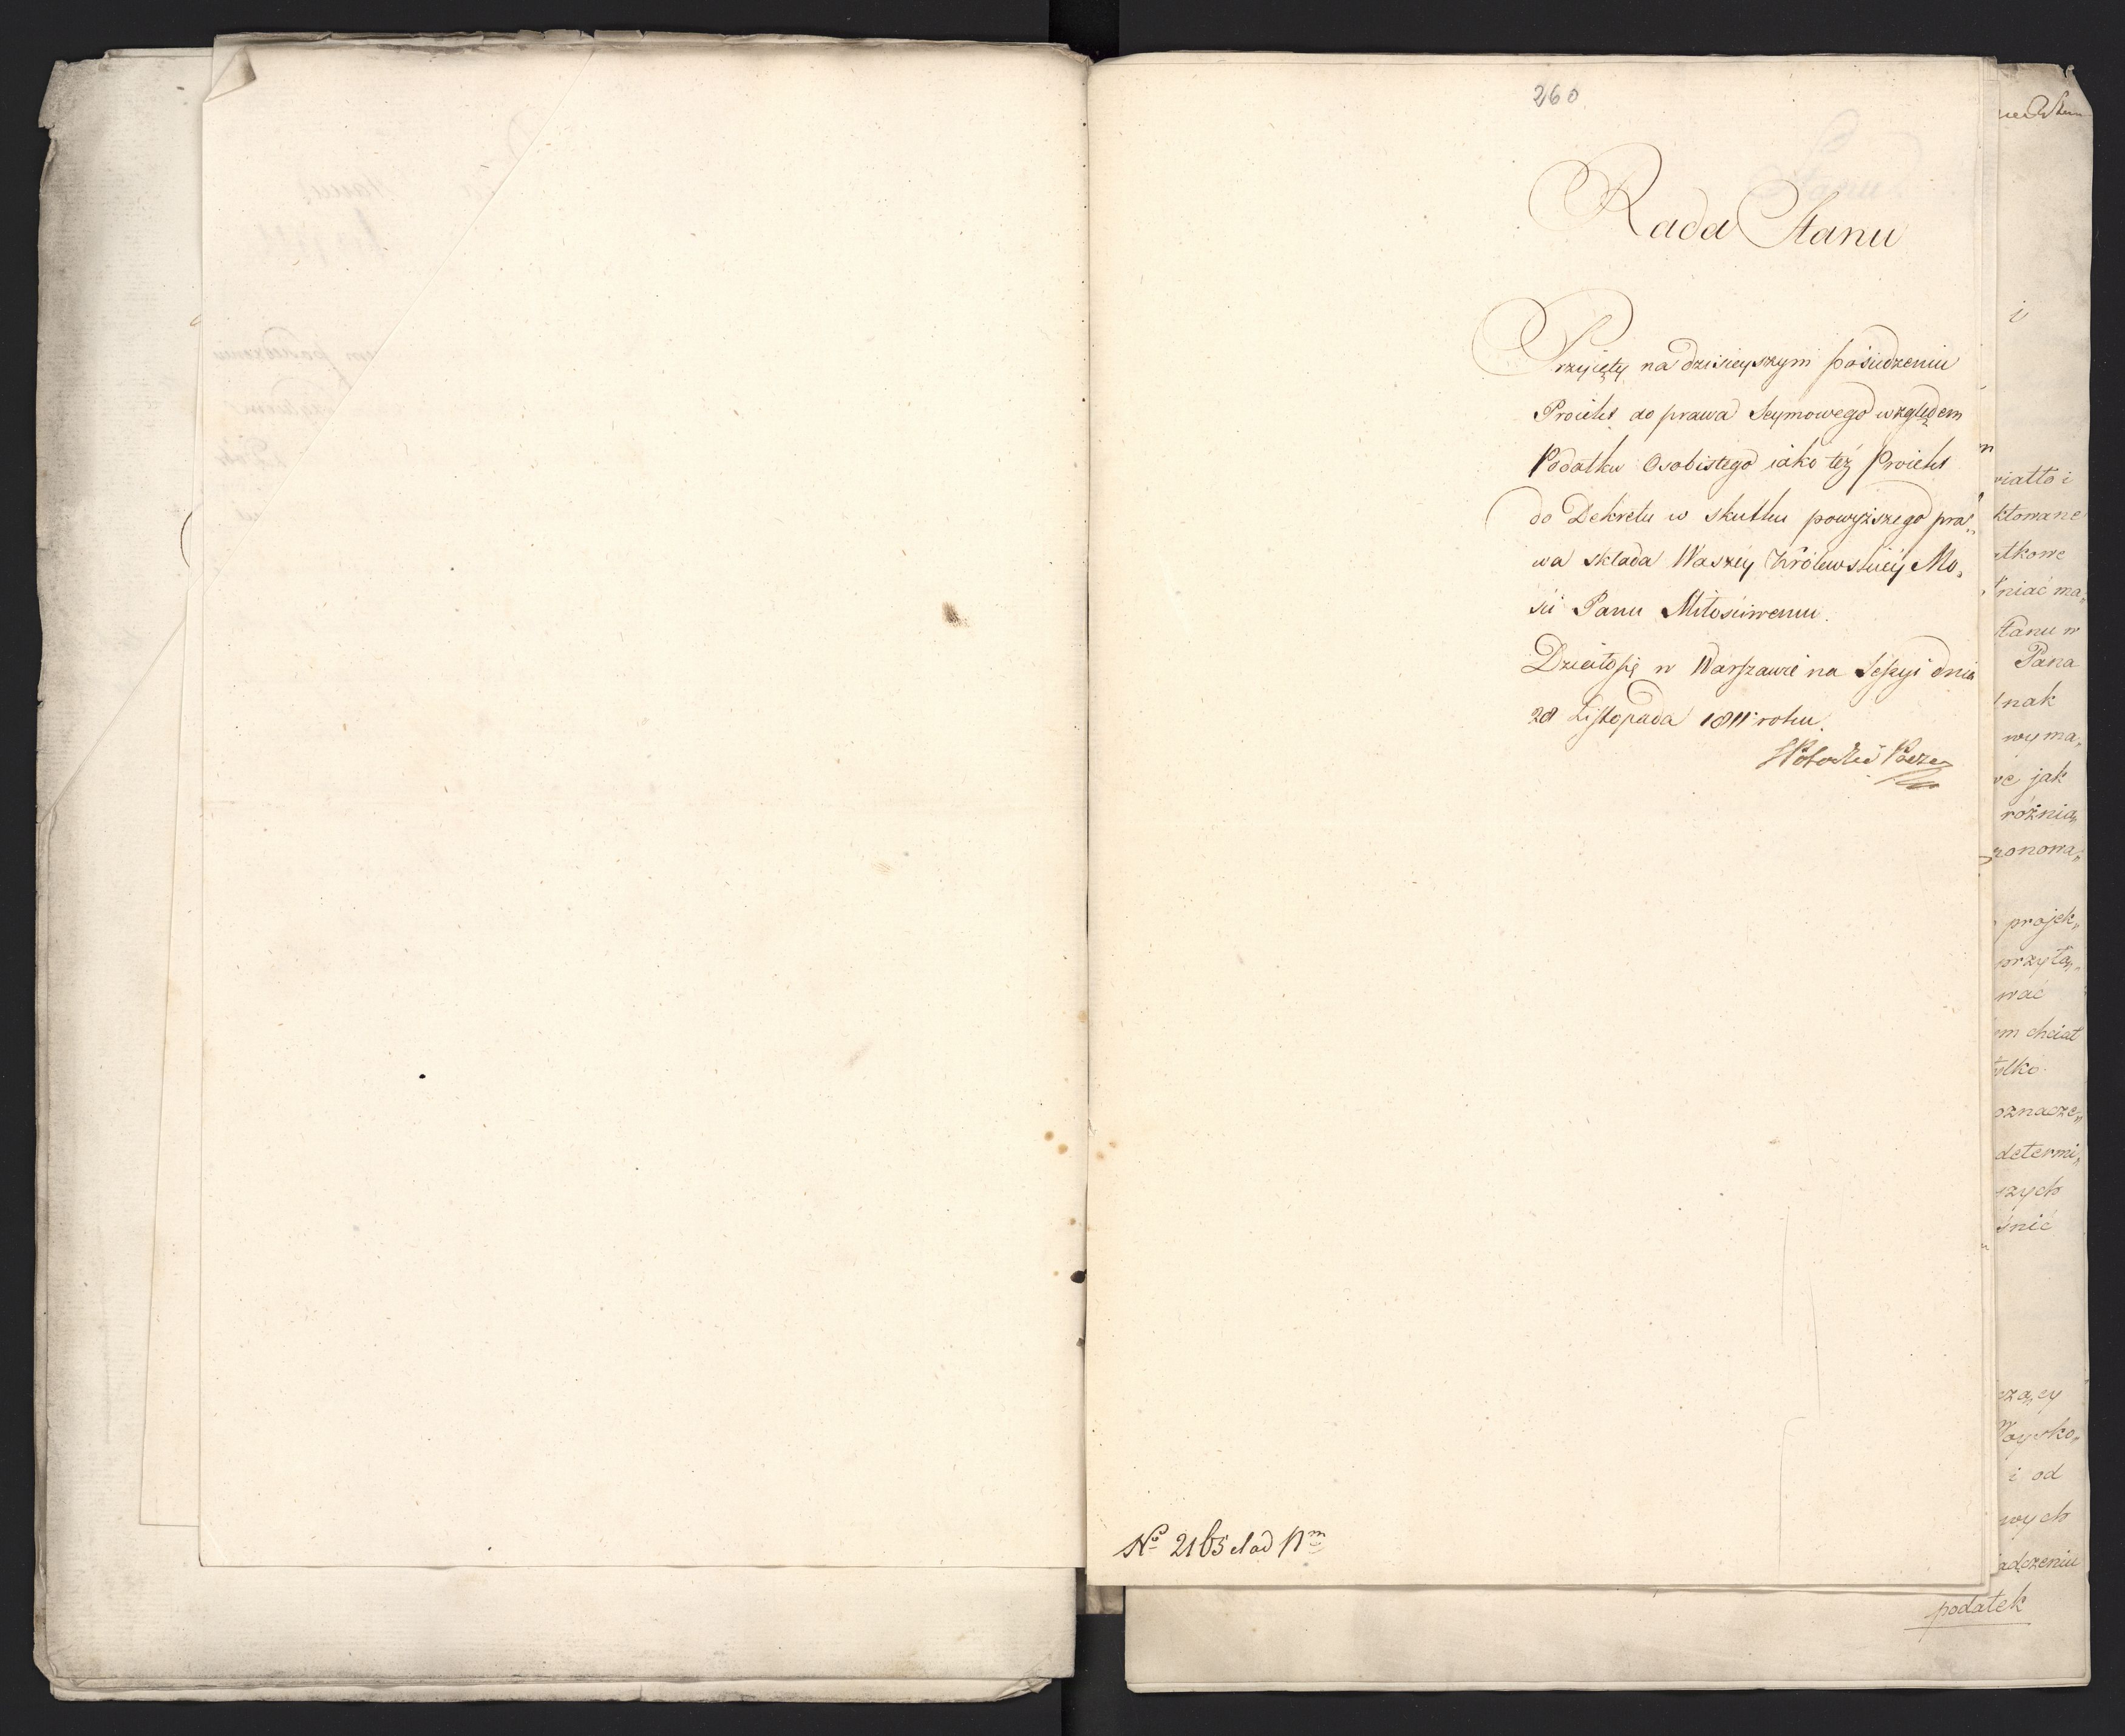 260
Rada Stanu
Przyięty na dzisieyszym posiedzeniu
Proiekt do prawa Seymowego względem
Podatku Osobistego iako też Proiekt
do Dekretu w skutku powyższego pra„
wa składa Waszey Królewskiey Mo„
ści Panu Miłościwemu.
Działo się w Warszawie na Sessyi dnia
28 Listopada 1811 roku.
Potocki Prezes
No 2165 et ad Nm
i
m
wiatło i
ktowane
atkowe
łniać ma„
Stanu w
Pana
dnak
wyma„
jak
różnia„
ronowa„
projek„
przyta„
wać
em chciał
tylko
oznacze„
determi„
szych
śnić
czący
Woysko„
i od
wych
adczeniu
podatek